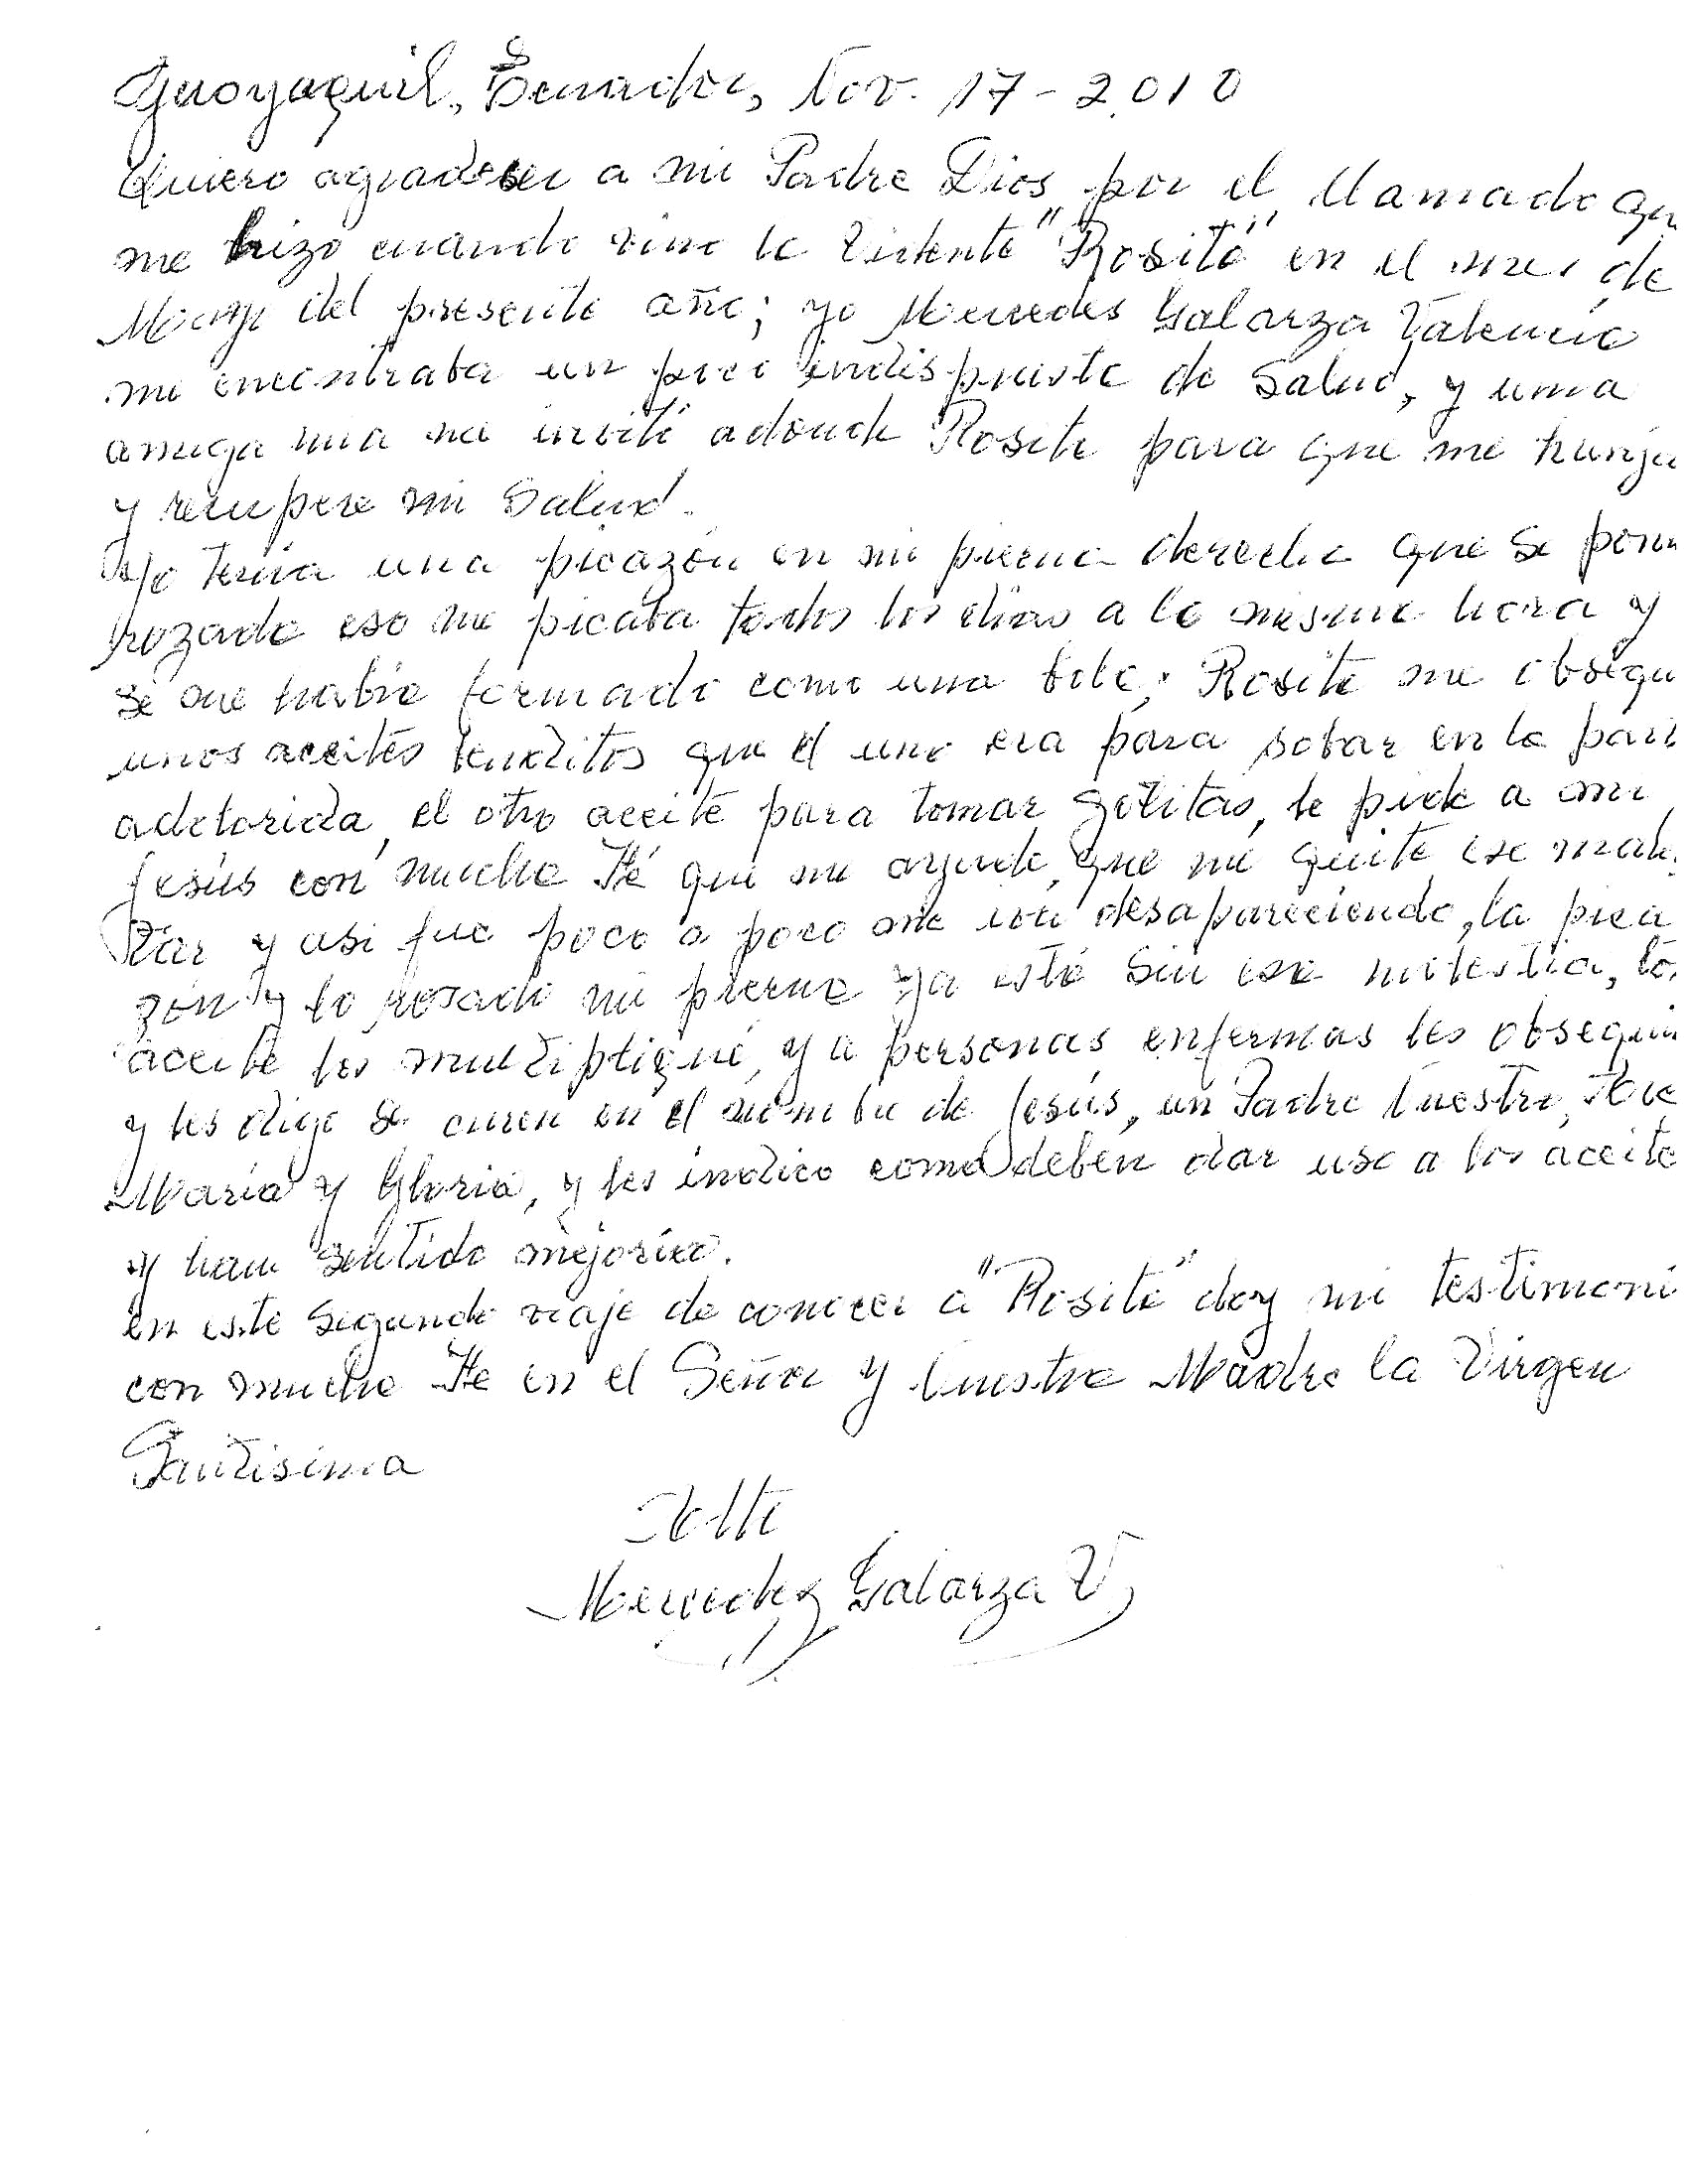 Guayaquil, Ecuador, Nov. 17 - 2010
Quiero agradecer a mi Padre Dios por el llamado qu
me hizo cuando vino la vidente "Rosita" en el mes de
Mayo del presente año; yo Mercedes Galarza Valencia
me encontraba un poco indispuesta de salud, y una
amiga mia me invitó adonde Rosita para que me hunja
y recupere mi salud.
Yo tenia una picazón en mi pierna derecha que se poni
rozada eso me picaba todos los dias a la misma hora y
se me habia formado como una bola; Rosita me obsequ
unos aceites benditos que el uno era para sobar en la part
adolorida, el otro aceite para tomar gotitas, le pide a mi
Jesús con mucha Fé que me ayude, que me quite ese males
tar y asi fue poco a poco me iba desapareciendo, la pica
zón y lo rosado mi pierna ya está sin esa molestia, los
aceite los multipliqué, y a personas enfermas les obsequi
y les digo se curen en el nombre de Jesús, un Padre Nuestro, Ave
María y Gloria, y les indico como deben dar uso a los aceite
y han sentido mejoria.
en este segundo viaje de conocer a "Rosita" doy mi testimoni
con mucha Fe en el Señor y Nuestra Madre la Virgen
Santisima
Atte
Mercedes Galarza V.